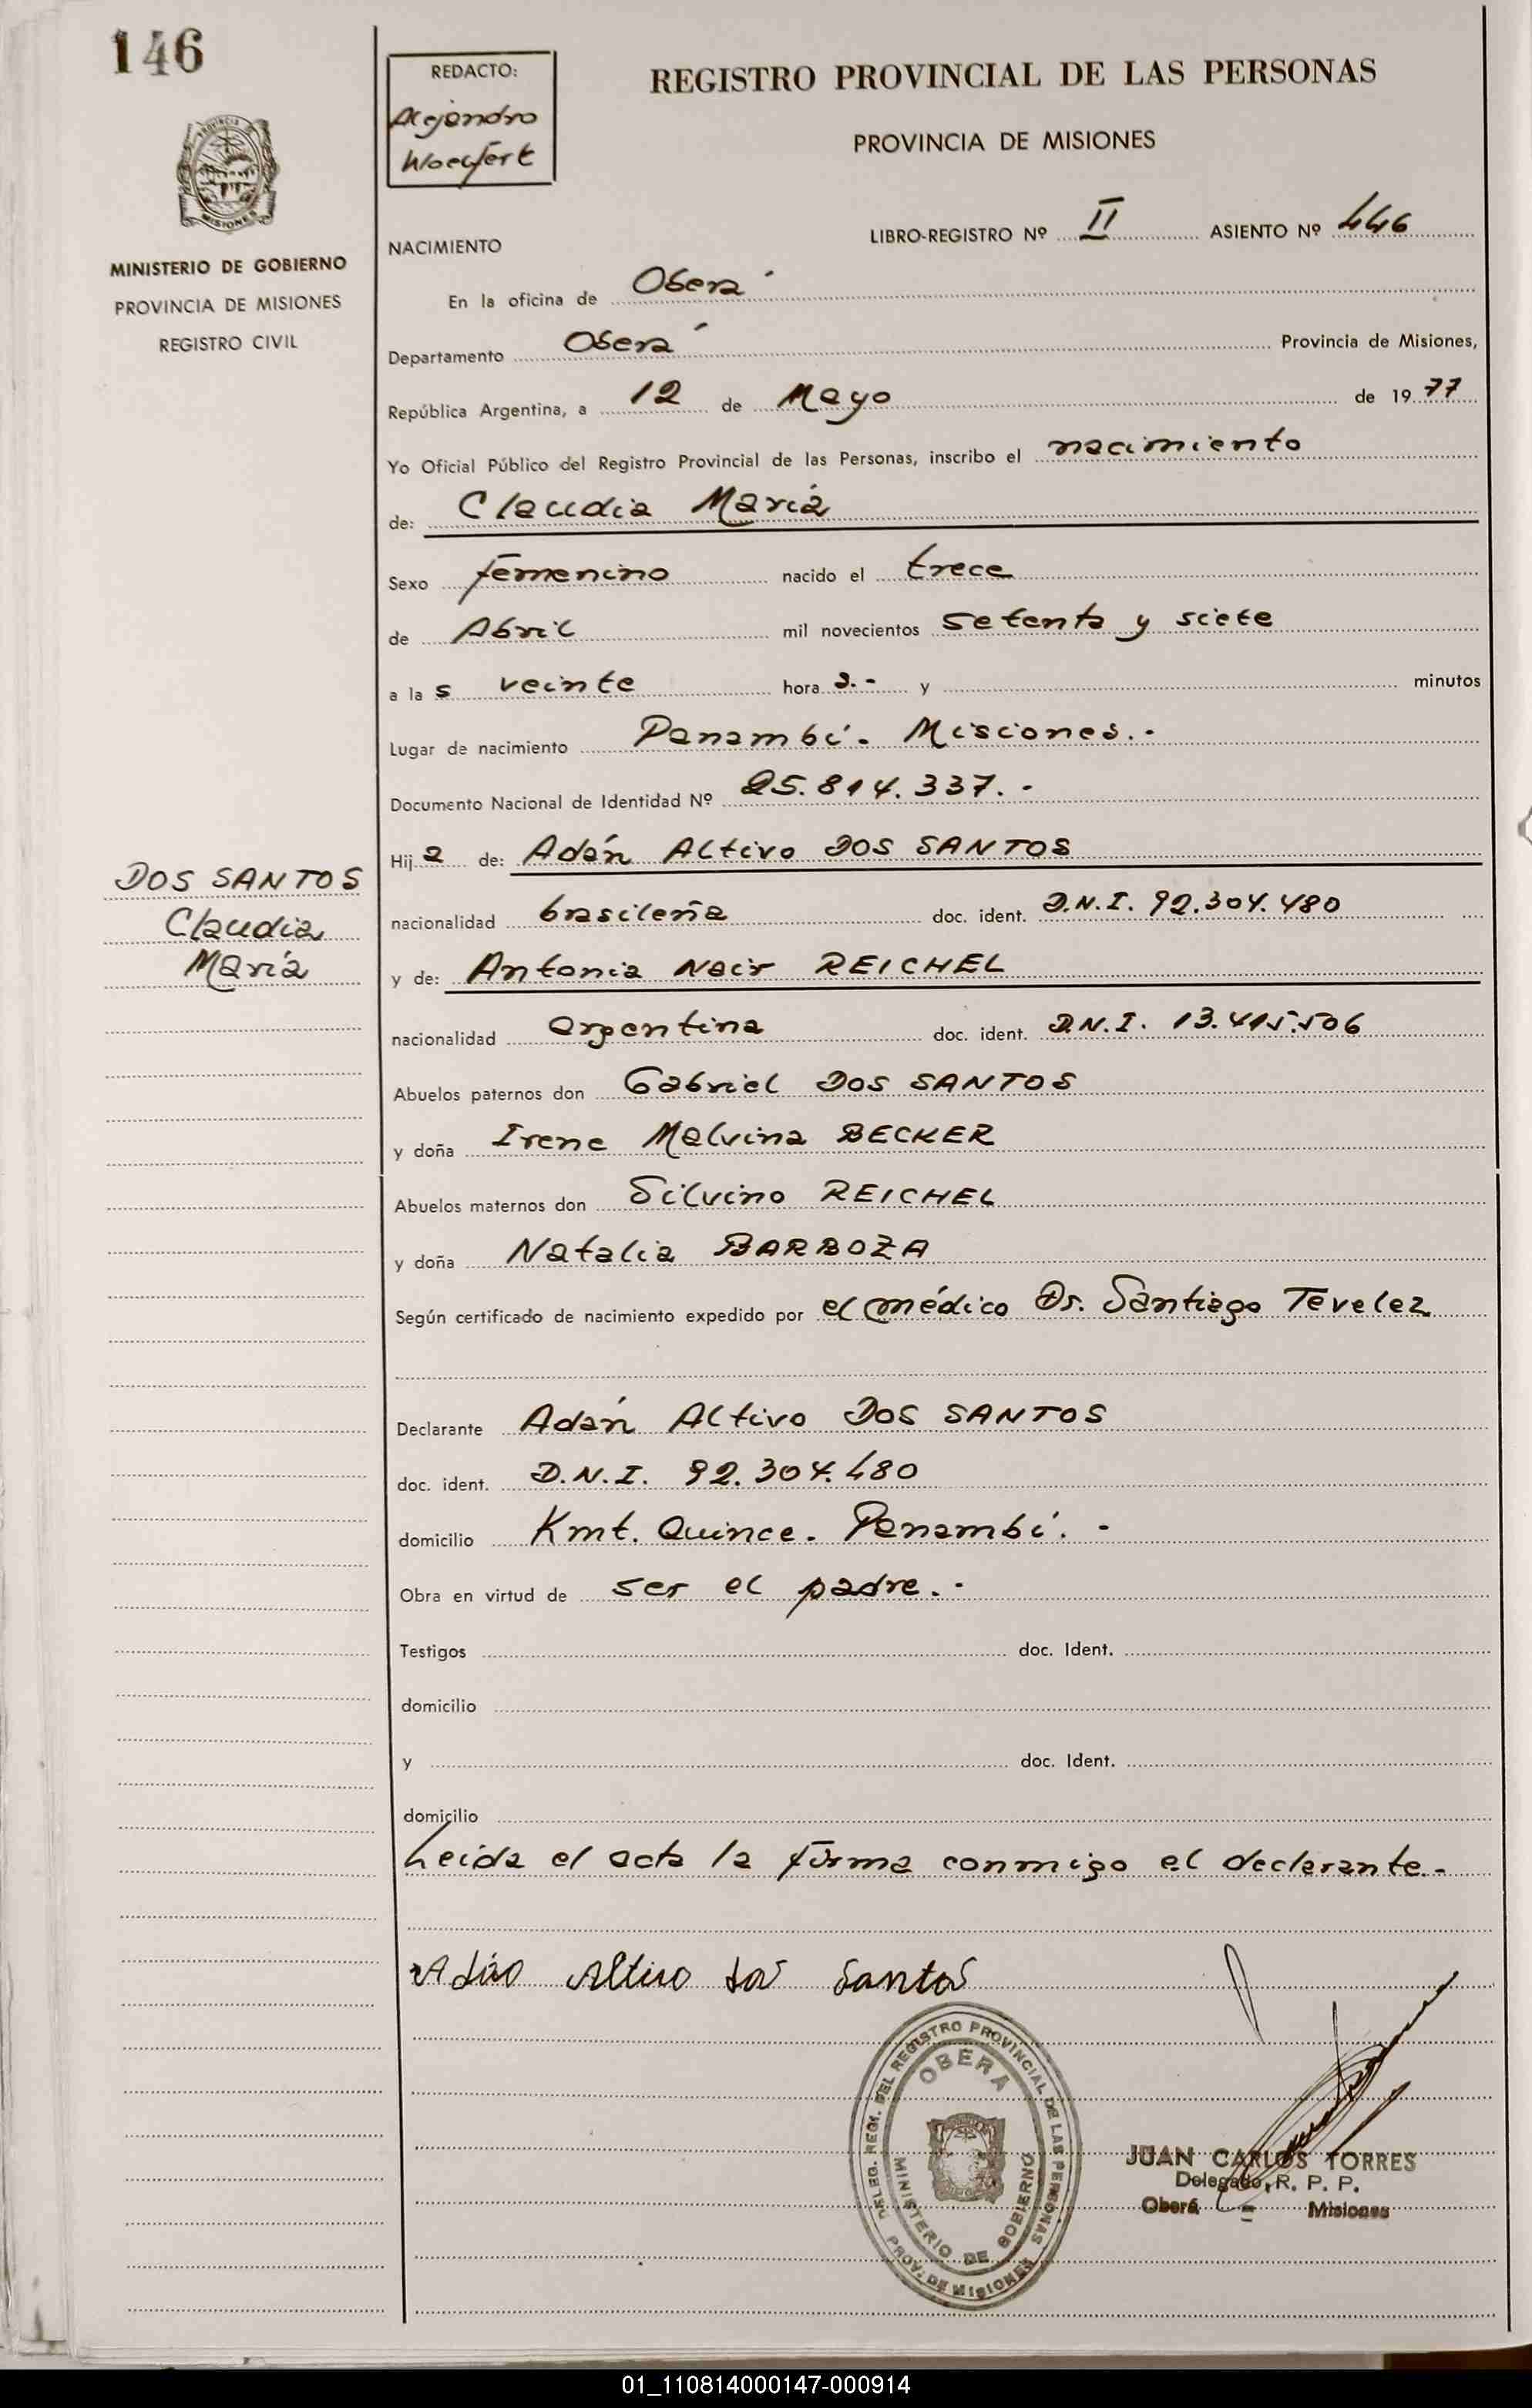 146
PROVINCIA DE
MISIONES
MINISTERIO DE GOBIERNO
PROVINCIA DE MISIONES
REGISTRO CIVIL
DOS SANTOS
Claudia
María
REDACTO:
Alejandro
REGISTRO PROVINCIAL DE LAS PERSONAS
PROVINCIA DE MISIONES
LIBRO-REGISTRO Nº II ASIENTO Nº 446
NACIMIENTO
En la oficina de Oberá
Departamento Oberá Provincia de Misiones,
República Argentina, a 12 de Mayo de 1977
Yo Oficial Público del Registro Provincial de las Personas, inscribo el nacimiento
de: Claudia María
Sexo femenino nacido el trece
de Abril mil novecientos setenta y siete
a la s veinte hora s.- y minutos
Lugar de nacimiento Panambí. Misiones.-
Documento Nacional de Identidad Nº 25.814.337.-
Hij a de: Adán Altivo DOS SANTOS
nacionalidad brasileña doc. ident. D.N.I. 92.304.480
y de: Antonia Nair REICHEL
nacionalidad argentina doc. ident. D.N.I. 13.415.506
Abuelos paternos don Gabriel DOS SANTOS
y doña Irene Malvina BECKER
Abuelos maternos don Silvino REICHEL
y doña Natalia BARBOZA
Según certificado de nacimiento expedido por el médico Dr. Santiago Tevelez
Declarante Adán Altivo DOS SANTOS
doc. ident. D.N.I. 92.304.480
domicilio Kmt. Quince. Panambí.-
Obra en virtud de ser el padre.-
Testigos doc. Ident.
domicilio
y doc. Ident.
domicilio
Leida el acta la firma conmigo el declarante.-
Adão Altivo dos Santos
DELEG. REGM. DEL REGISTRO PROVINCIAL DE LAS PERSONAS
OBERA
MINISTERIO DE GOBIERNO
PROV. DE MISIONES
JUAN CARLOS TORRES
Delegado, R. P. P.
Oberá - Misiones
01_110814000147-000914